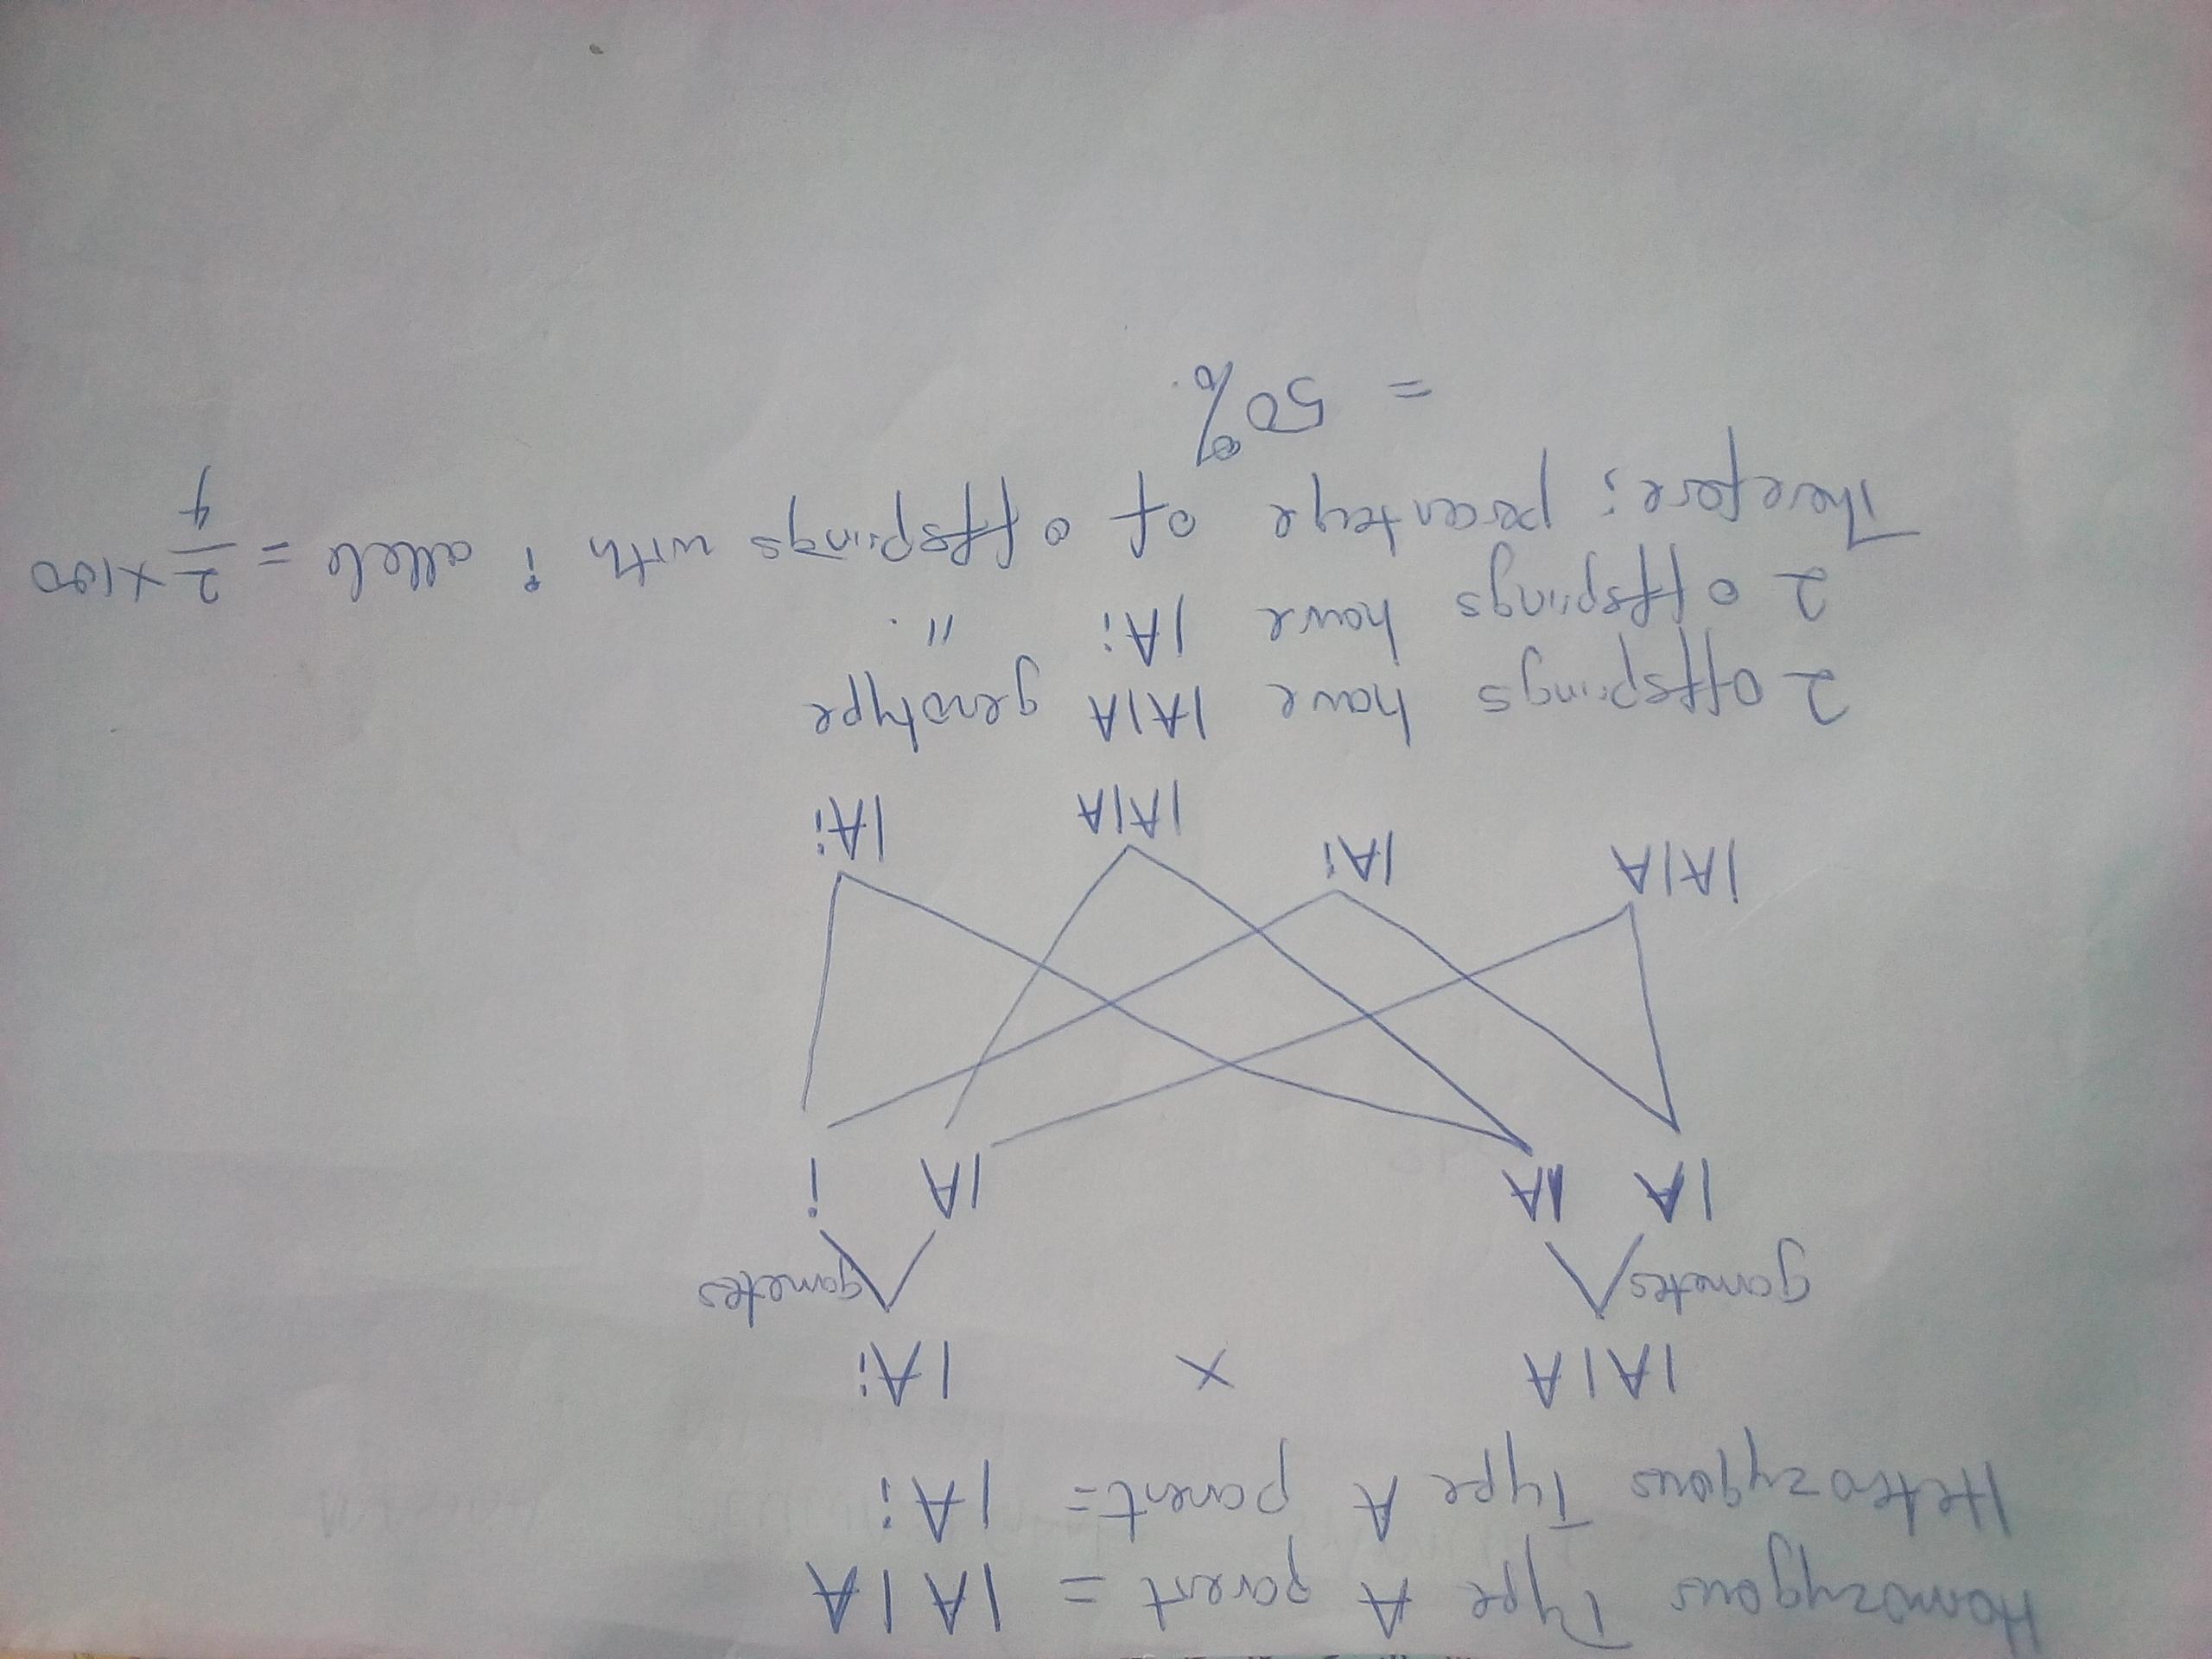 Homozygous Type A parent = IAIA
Heterozygous Type A parent = IAi
IAIA x IAi
gametes gametes
IA IA IA i
IAIA IAi IAIA IAi
2 offsprings have IAIA genotype
2 offsprings have IAi "
Therefore; percentage of offsprings with i allele = 2/4 x100
= 50%